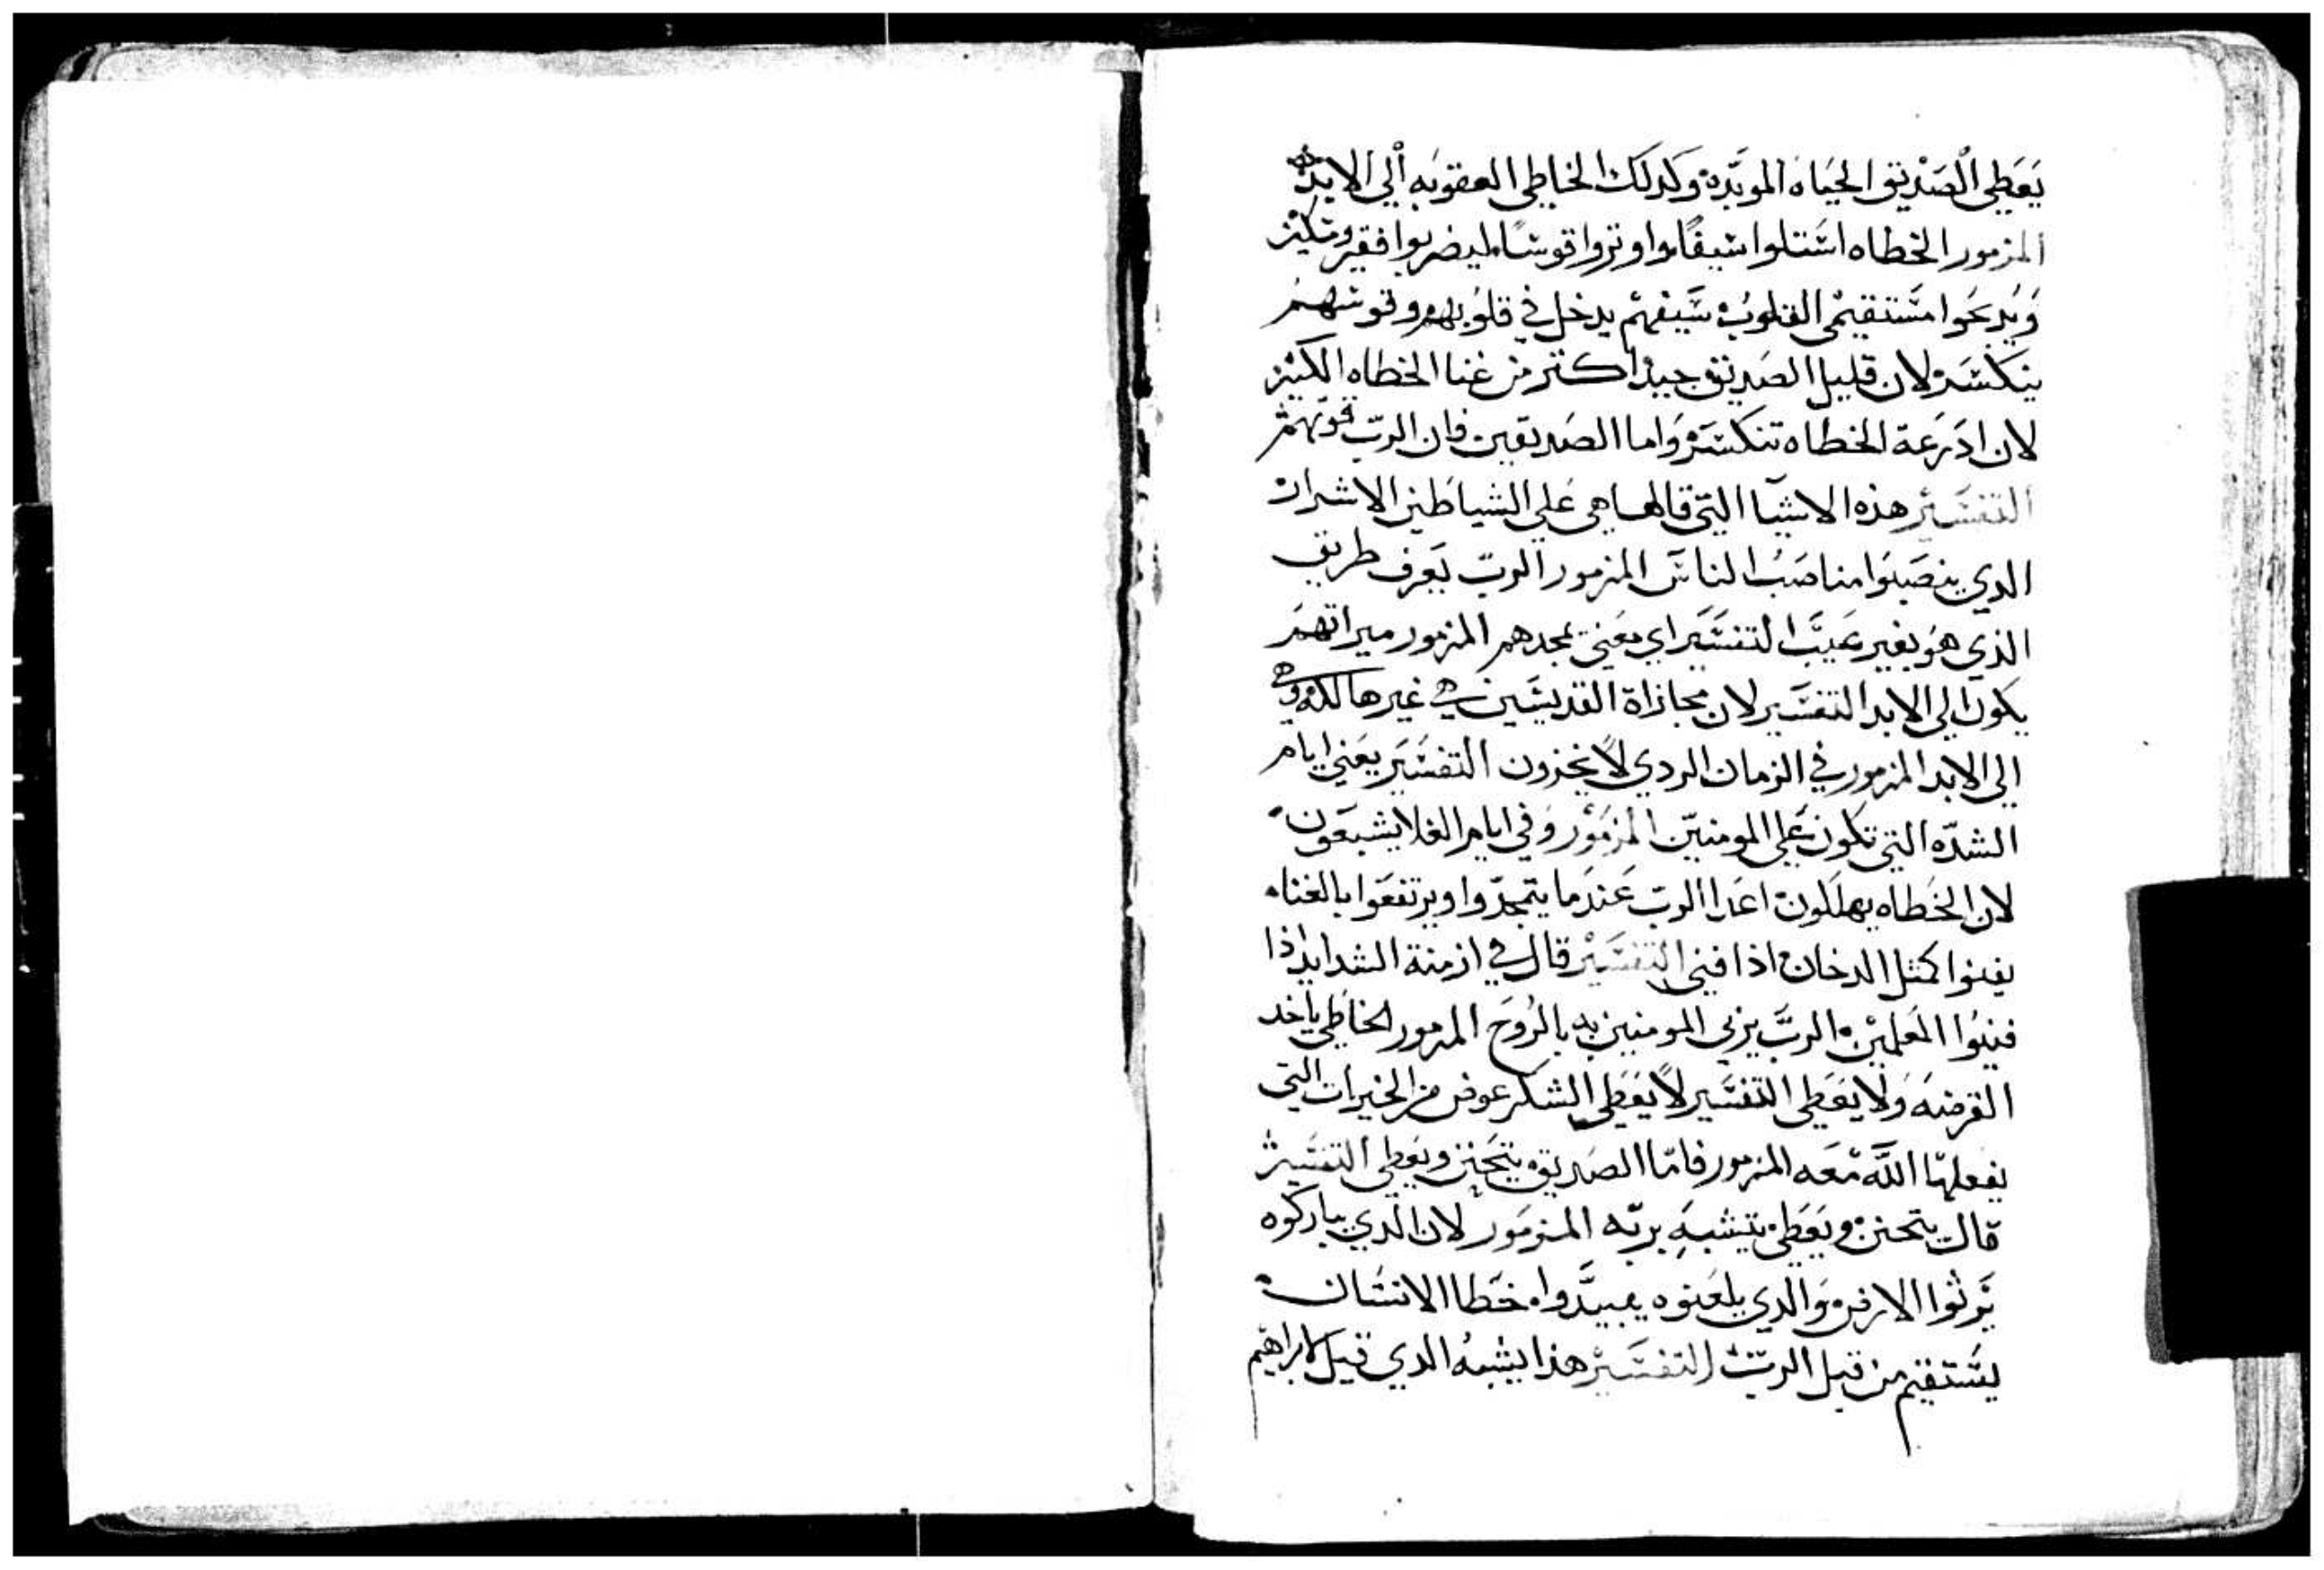 يعَطي الصَديق الحَياه الموبّده وكدلك الخاطي العقوبه إلي الابد
المزمور الخطاه استلوا سيفًا واوتروا قوسًا ليضربوا فقير ومسكين
وَيدبحَوا مسَتقيمي القلوب سَيفهم يدخل في قلوبهم وقوسهم
ينكسَر لان قليل الصَديق جيد اكتر من غنا الخطاه الكتير
لان ادرَعة الخطاه تنكسَر وَاما الصَديقين فان الربّ قوتهم
التفسَير هذه الاشيآ التي قالها هي عَلي الشياطين الاشرار
الدي ينصَبَوا مناصَب الناسَ المزمور الربّ يَعرف طريق
الذي هو بغير عَيبَ التفسَير اي معَني مجدهم المزمور ميراتهم
يكون إلي الابد التفسَير لان مجازاة القديسَين هي غير هالكه وهي
إلي الابد المزمور في الزمان الردي لا يخزون التفسَير يعَني ايام
الشدّه التي تكون عَلي المومنيّن المزمَور وَفي ايام الغلا يشبعَون
لان الخَطاه يهلكون اعَدا الربّ عَندَما يتمجدّوا ويرتفعَوا بالغناه
يفنوا كمتل الدخان اذا فني التفسَير قال في ازمنة الشدايد اذا
فنيوا المعَلمين الربَّ يربي المومنين به بالرُوحَ المزمور الخاطي ياخد
القرضه وَلا يعَطي التفسَير لا يعَطي الشكر عوض من الخيرات التي
يفعلها اللّه معَه المزمور فامّا الصَديق يتحَنن ويعَطي التفسَير
قال يتحنن ويعَطي يتشبه بربّه المزمور لان الدي يباركوه
يَرثوا الارض وَالدي يلعَنوه يبيدَّوا خطا الانسَان
يسَتقيم من قبل الربّ التفسَير هذا يشبهُ الدي قيل لابراهيم